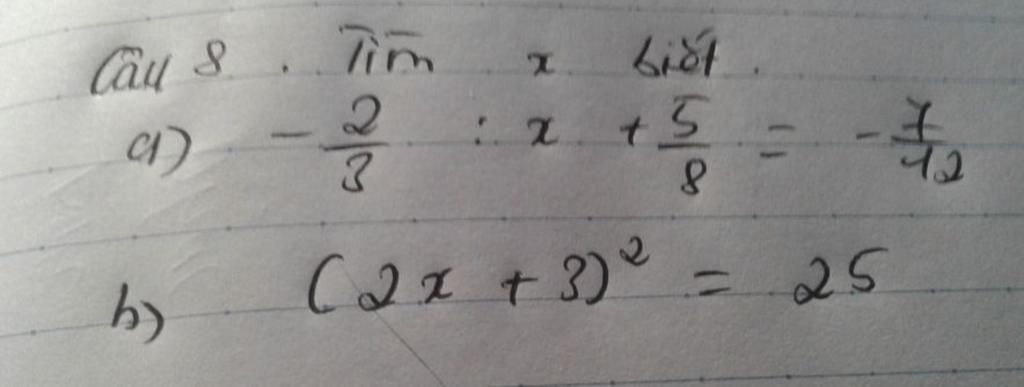 Câu 8. Tìm x biết.
a) -2/3 : x + 5/8 = -7/12
b) (2x + 3)² = 25